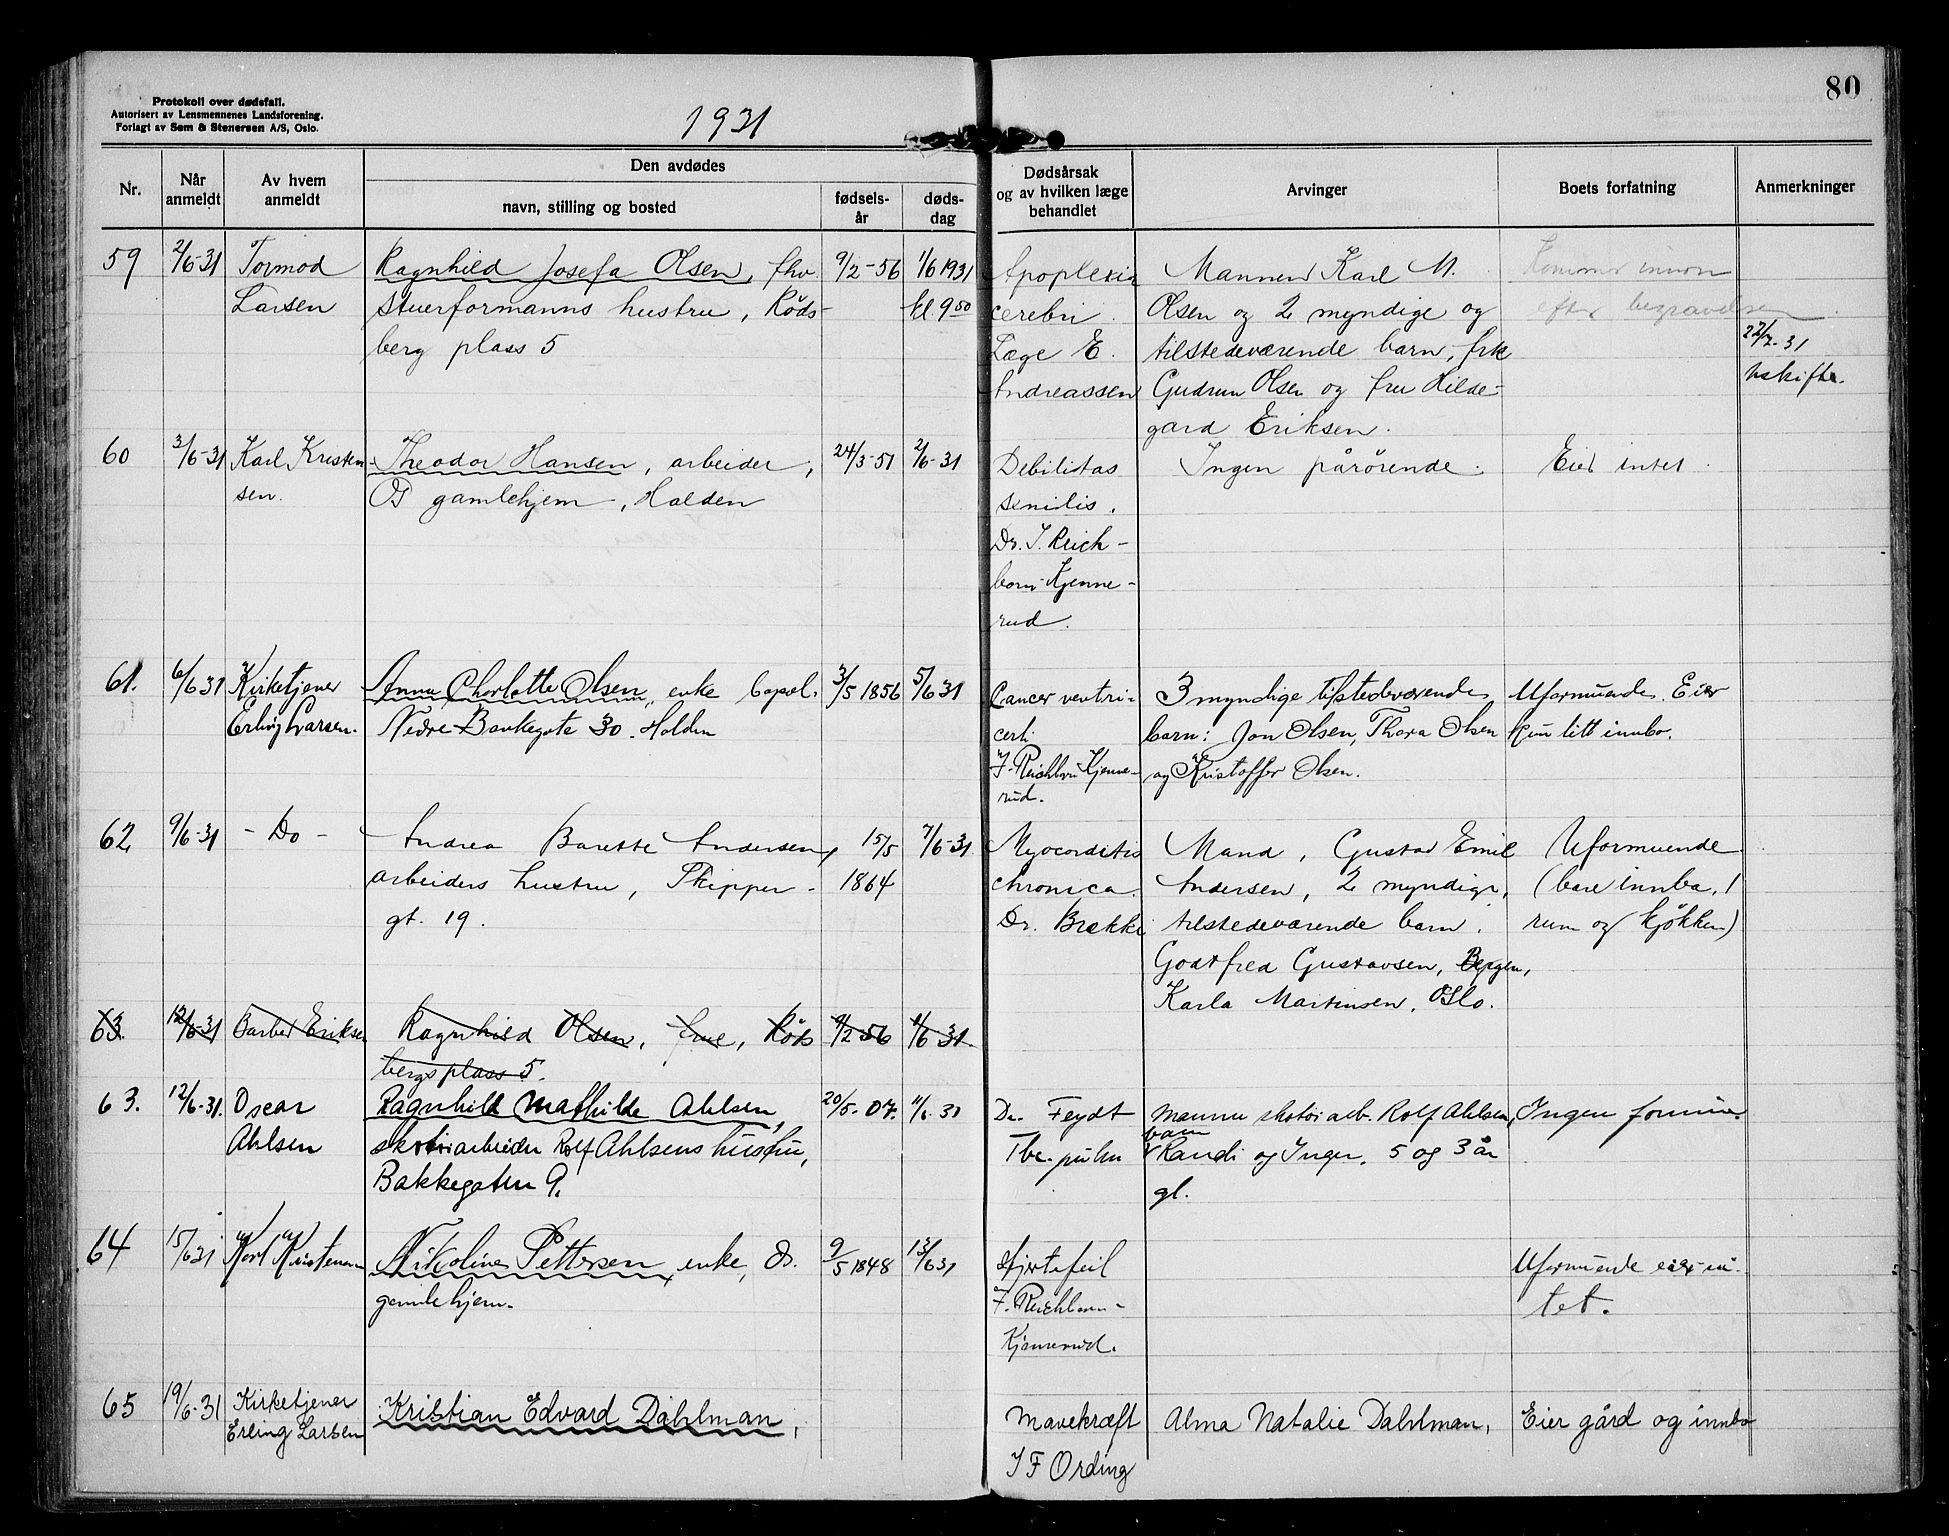 80
Protokoll over dødsfall.
Autorisert av Lensmennenes Landsforening.
Forlagt av Sem & Stenersen A/S, Oslo.
1931
Nr.
Når anmeldt
Av hvem anmeldt
Den avdødes
navn, stilling og bosted
fødsels-år
døds-dag
Dødsårsak og av hvilken læge behandlet
Arvinger
Boets forfatning
Anmerkninger
59
2/6-31
Tormod
Larsen
Ragnhild Josefa Olsen, fhv.
stuerformanns hustru, Røds-
berg plass 5
9/2-56
1/6 1931
kl 9.50
Apoplexia
cerebri.
Læge E.
Andreassen
Mannen Karl M.
Olsen og 2 myndige og
tilstedeværende barn, frk
Gudrun Olsen og fru Hilde-
gard Eriksen.
Kommer innom
efter begravelsen.
22/7-31
Uskifte.
60
3/6-31
Karl Kristen
sen.
Theodor Hansen, arbeider,
Os gamlehjem, Halden
24/3-51
2/6-31
Debilitas
senilis.
Dr. I. Reich-
born-Kjenne-
rud.
Ingen pårørende.
Eier intet
61.
6/6 31
Kirketjener
Erling Larsen.
Anna Charlotte Olsen, enke
Nedre Bankegate 30. Halden
3/5 1856
5/6 31
Cancer ventri-
culi.
I. Reichborn Kjenne-
rud.
3 myndige tilstedeværende
barn: Jon Olsen, Thora Olsen
og Kristoffer Olsen.
Uformuende. Eier
kun litt innbo.
62
9/6-31
- Do -
Andrea Barette Andersen,
arbeiders hustru, Skipper-
gt. 19.
15/5
1864
7/6-31.
Myocarditis
chronica.
Dr. Brække
Mand, Gustav Emil
Andersen, 2 myndige,
tilstedeværende barn.
Godtfred Gustavsen, Bergen,
Karla Martinsen, Oslo.
Uformuende
(bare innbo, 1
rum og kjøkken)
63.
12/6-31
Barber Eriksen
Ragnhild Olsen, frue, Røds
bergs plass 5.
9/2 56
1/6 31.
63.
12/6-31.
Oscar
Ahlsen
Ragnhild Mathilde Ahlsen,
skotøiarbeider Rolf Ahlsens hustru,
Bakkegaten 9.
20/5-07.
11/6-31
Dr. Feydt
Tbc. pulm
Mannen skotøiarb. Rolf Ahlsen,
barn
Randi og Inger, 5 og 3 år
gl.
Ingen formue
64
15/6 31
Karl Kristensen
Nikoline Pettersen, enke, Os.
gamlehjem.
9/5 1848
13/6 31
Hjertefeil
I. Reichborn-
Kjennerud.
Uformuende eier in-
tet.
65
19/6-31
Kirketjener
Erling Larsen
Kristian Edvard Dahlman,
Mavekræft
I F Ording
Alma Natalie Dahlman,
Eier gård og innbo